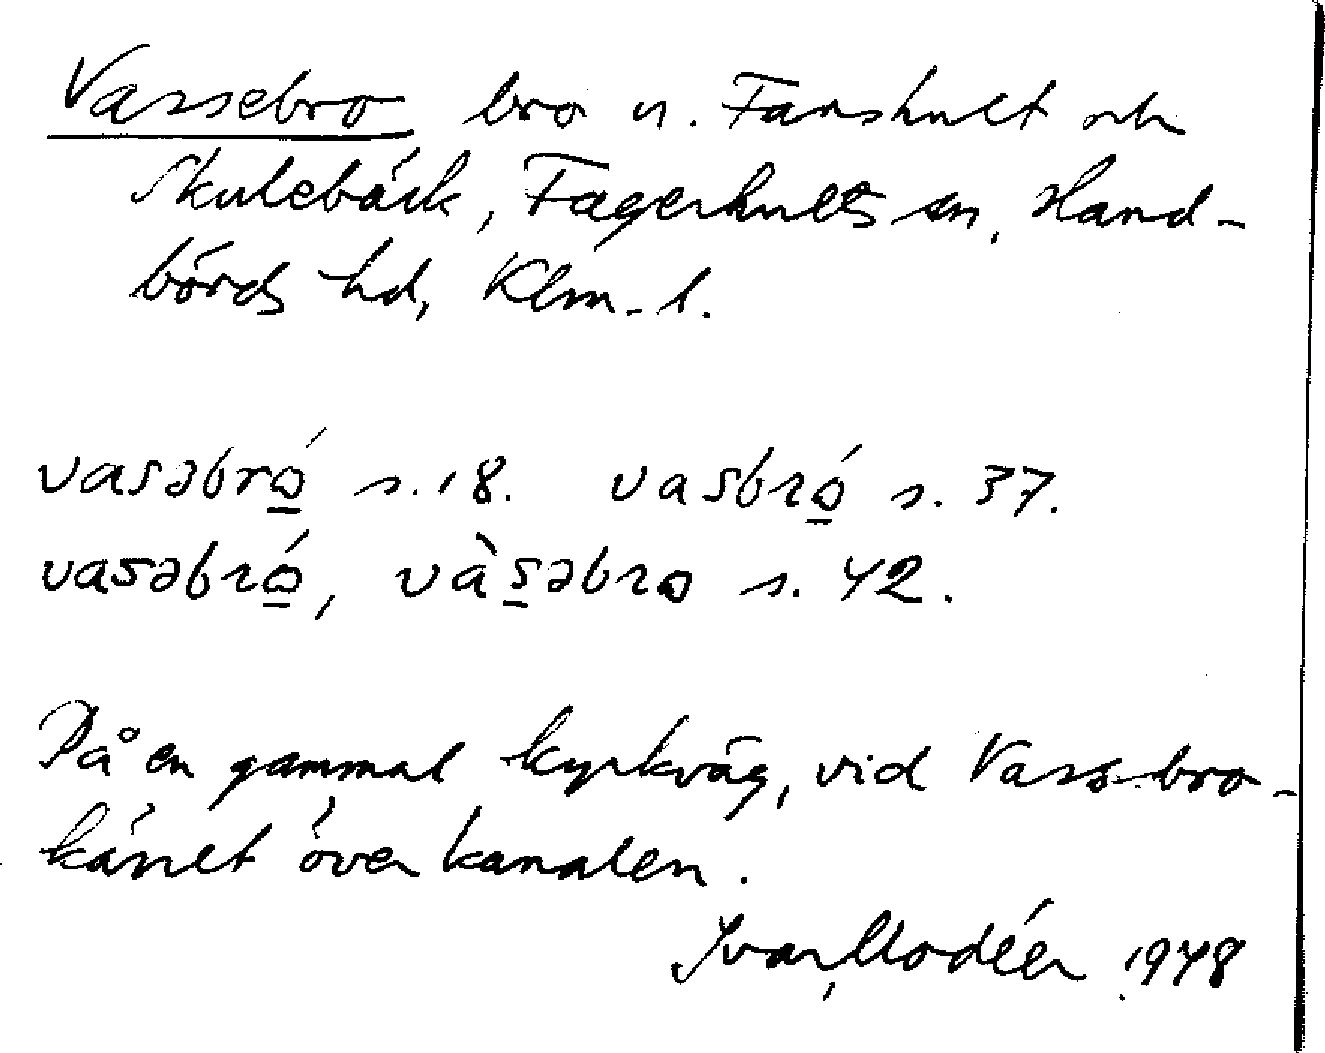 Vassebro bro n. Farshult och
Skulebäck, Fagerhults sn, Hand-
börds hd, Klm. l.
vasəbró̱ s. 18. vasbró̱ s. 37.
vasəbró̱, vàs̱əbro s. 42.
På en gammal kyrkväg, vid Vassbro-
kärret över kanalen.
Ivar Modéer 1948